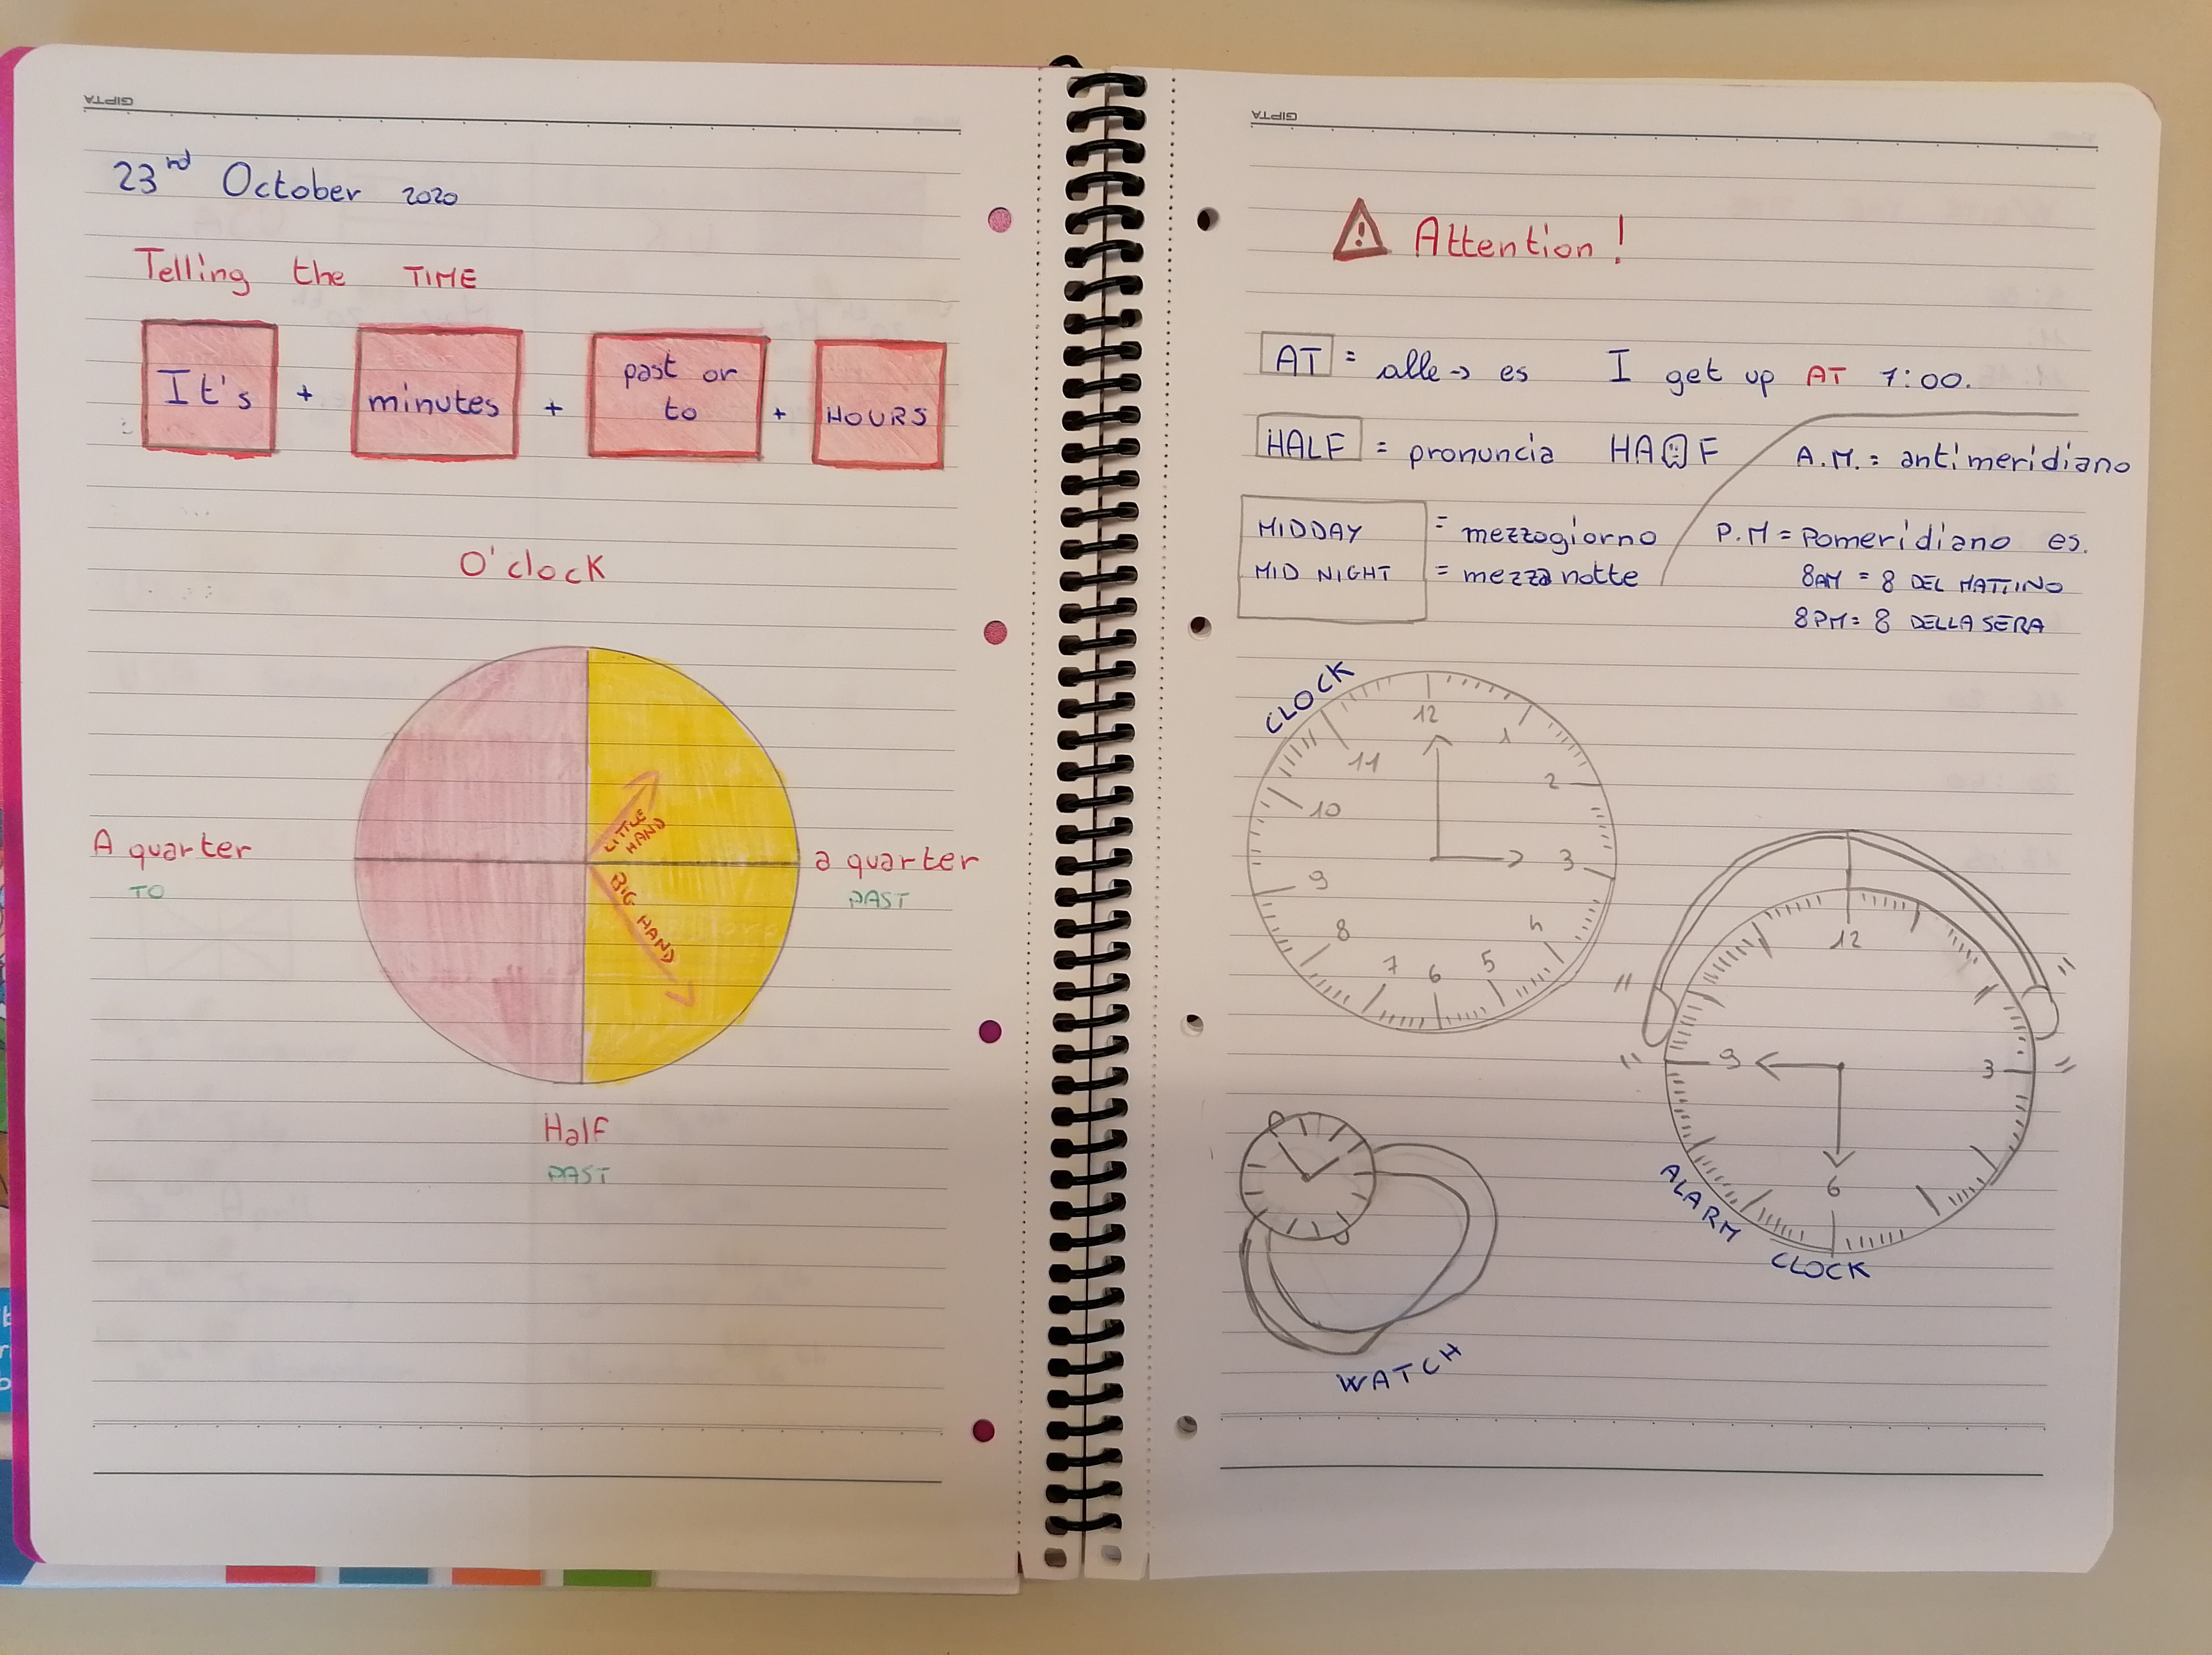 GIPTA
23rd October 2020
Telling the TIME
It's + minutes + past or to + HOURS
O'clock
LITTLE HAND
BIG HAND
A quarter
TO
a quarter
PAST
Half
PAST
GIPTA
! Attention!
AT = alle → es I get up AT 7:00.
HALF = pronuncia HA F
A.M. = antimeridiano
MIDDAY = mezzogiorno
MID NIGHT = mezzanotte
P.M = Pomeridiano es.
8AM = 8 DEL MATTINO
8PM = 8 DELLA SERA
CLOCK
12
1
2
3
4
5
6
7
8
9
10
11
12
3
6
9
ALARM CLOCK
WATCH